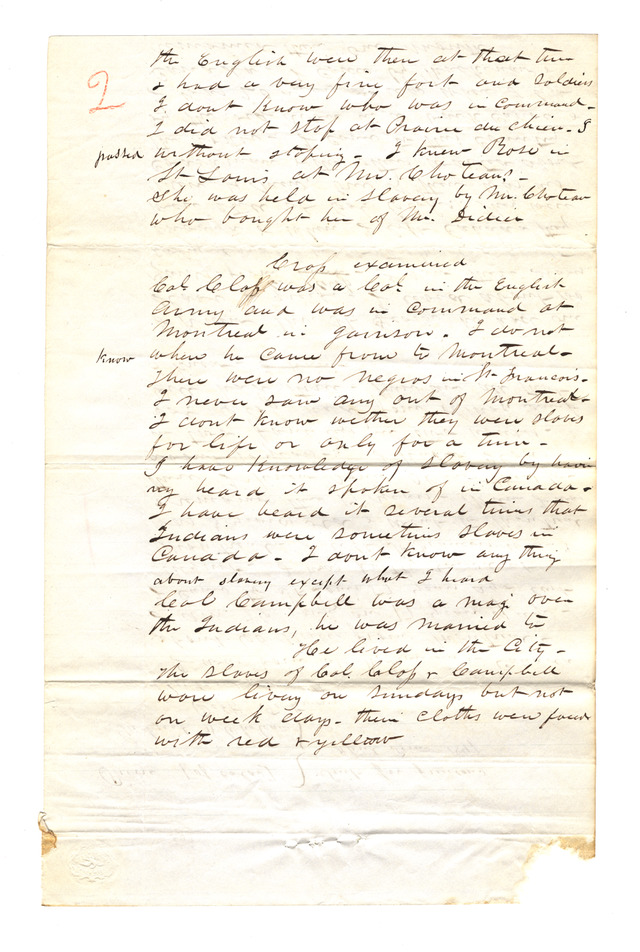 2
the English were then at that time
& had a very fine fort and Soldiers
I dont know who was in command -
I did not stop at Prairie du chien - I
passed without stoping - I knew Rose in
St Louis at Mr. Choteaus -
She was held in slavery by Mr. Choteau
who bought her of Mr. Didier
Cross examined
Col. Closs was a Col. in the English
Army and was in command at
Montreal in garrison. I do not
know where he came from to Montreal -
There were no negros in St Francois -
I never saw any out of Montreal -
I dont know wether they were slaves
for life or only for a time -
I have knowledge of slavery by havi
ng heard it spoken of in Canada -
I have heard it several times that
Indians were sometims slaves in
Canada - I dont know any thing
about slavery except what I heard
Col Campbell was a maj over
the Indians, he was married to
He lived in the City -
The slaves of Col. Closs & Campbell
wore livery on Sundays but not
on week days - their cloths were faced
with red & yellow